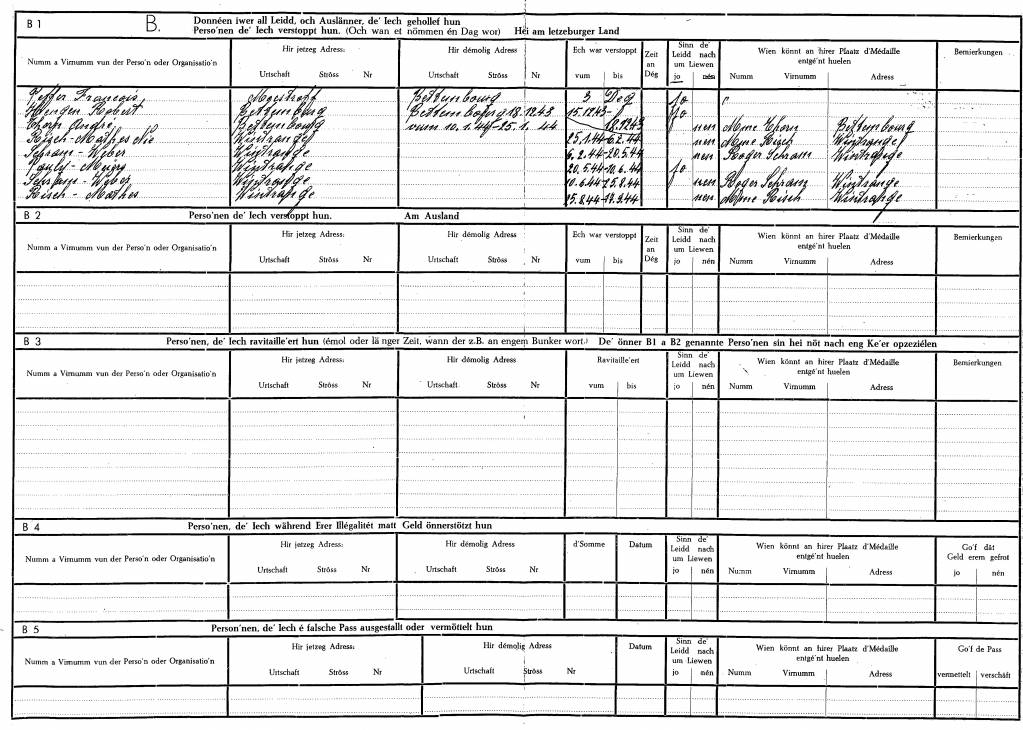 B 1 B. Donnéen iwer all Leidd, och Auslänner, de' Iech gehollef hun
Perso'nen de' Iech verstoppt hun. (Och wan et nömmen én Dag wor) Héi am letzeburger Land
Numm a Virnumm vun der Perso'n oder Organisatio'n
Hir jetzeg Adress:
Urtschaft Ströss Nr
Hir démolig Adress
Urtschaft Ströss Nr
Ech war verstoppt
vum bis
Zeit an Dég
Sinn de' Leidd nach um Liewen
jo nén
Wien könnt an hirer Plaatz d'Médaille entgé'nt huelen
Numm Virnumm Adress
Bemierkungen
François Bettembourg 3 Deg jo
Robert Bettembourg Bettembourg 18.12.43 15.12.43- jo
Thorn André Bettembourg vum 10.1.44-25.1.44 18.12.43 nen Mme Thorn Bettembourg
Risch-Mathes Nic Wintrange 25.1.44-6.2.44 nen Mme Risch Wintrange
Schram-Weber Wintrange 6.2.44-20.5.44 nen Roger Schram Wintrange
Wintrange 20.5.44-10.6.44 jo
Schram-Weber Wintrange 10.6.44-25.8.44 nen Roger Schram Wintrange
Risch-Mathes Wintrange 25.8.44- nen Mme Risch Wintrange
B 2 Perso'nen de' Iech verstoppt hun. Am Ausland
Numm a Virnumm vun der Perso'n oder Organisatio'n
Hir jetzeg Adress:
Urtschaft Ströss Nr
Hir démolig Adress
Urtschaft Ströss Nr
Ech war verstoppt
vum bis
Zeit an Dég
Sinn de' Leidd nach um Liewen
jo nén
Wien könnt an hirer Plaatz d'Médaille entgé'nt huelen
Numm Virnumm Adress
Bemierkungen
B 3 Perso'nen, de' Iech ravitaille'ert hun (émol oder lä nger Zeit, wann der z.B. an engem Bunker wort.) De' önner B1 a B2 genannte Perso'nen sin hei nöt nach eng Ke'er opzeziélen
Numm a Virnumm vun der Perso'n oder Organisatio'n
Hir jetzeg Adress:
Urtschaft Ströss Nr
Hir démolig Adress
Urtschaft Ströss Nr
Ravitaille'ert
vum bis
Sinn de' Leidd nach um Liewen
jo nén
Wien könnt an hirer Plaatz d'Médaille entgé'nt huelen
Numm Virnumm Adress
Bemierkungen
B 4 Perso'nen, de' Iech während Erer Illégalitét matt Geld önnerstötzt hun
Numm a Virnumm vun der Perso'n oder Organisatio'n
Hir jetzeg Adress:
Urtschaft Ströss Nr
Hir démolig Adress
Urtschaft Ströss Nr
d'Somme
Datum
Sinn de' Leidd nach um Liewen
jo nén
Wien könnt an hirer Plaatz d'Médaille entgé'nt huelen
Numm Virnumm Adress
Go'f dât Geld erem gefrot
jo nén
B 5 Person'nen, de' Iech é falsche Pass ausgestallt oder vermöttelt hun
Numm a Virnumm vun der Perso'n oder Organisatio'n
Hir jetzeg Adress:
Urtschaft Ströss Nr
Hir démolig Adress
Urtschaft Ströss Nr
Datum
Sinn de' Leidd nach um Liewen
jo nén
Wien könnt an hirer Plaatz d'Médaille entgé'nt huelen
Numm Virnumm Adress
Go'f de Pass
vermettelt verschäft